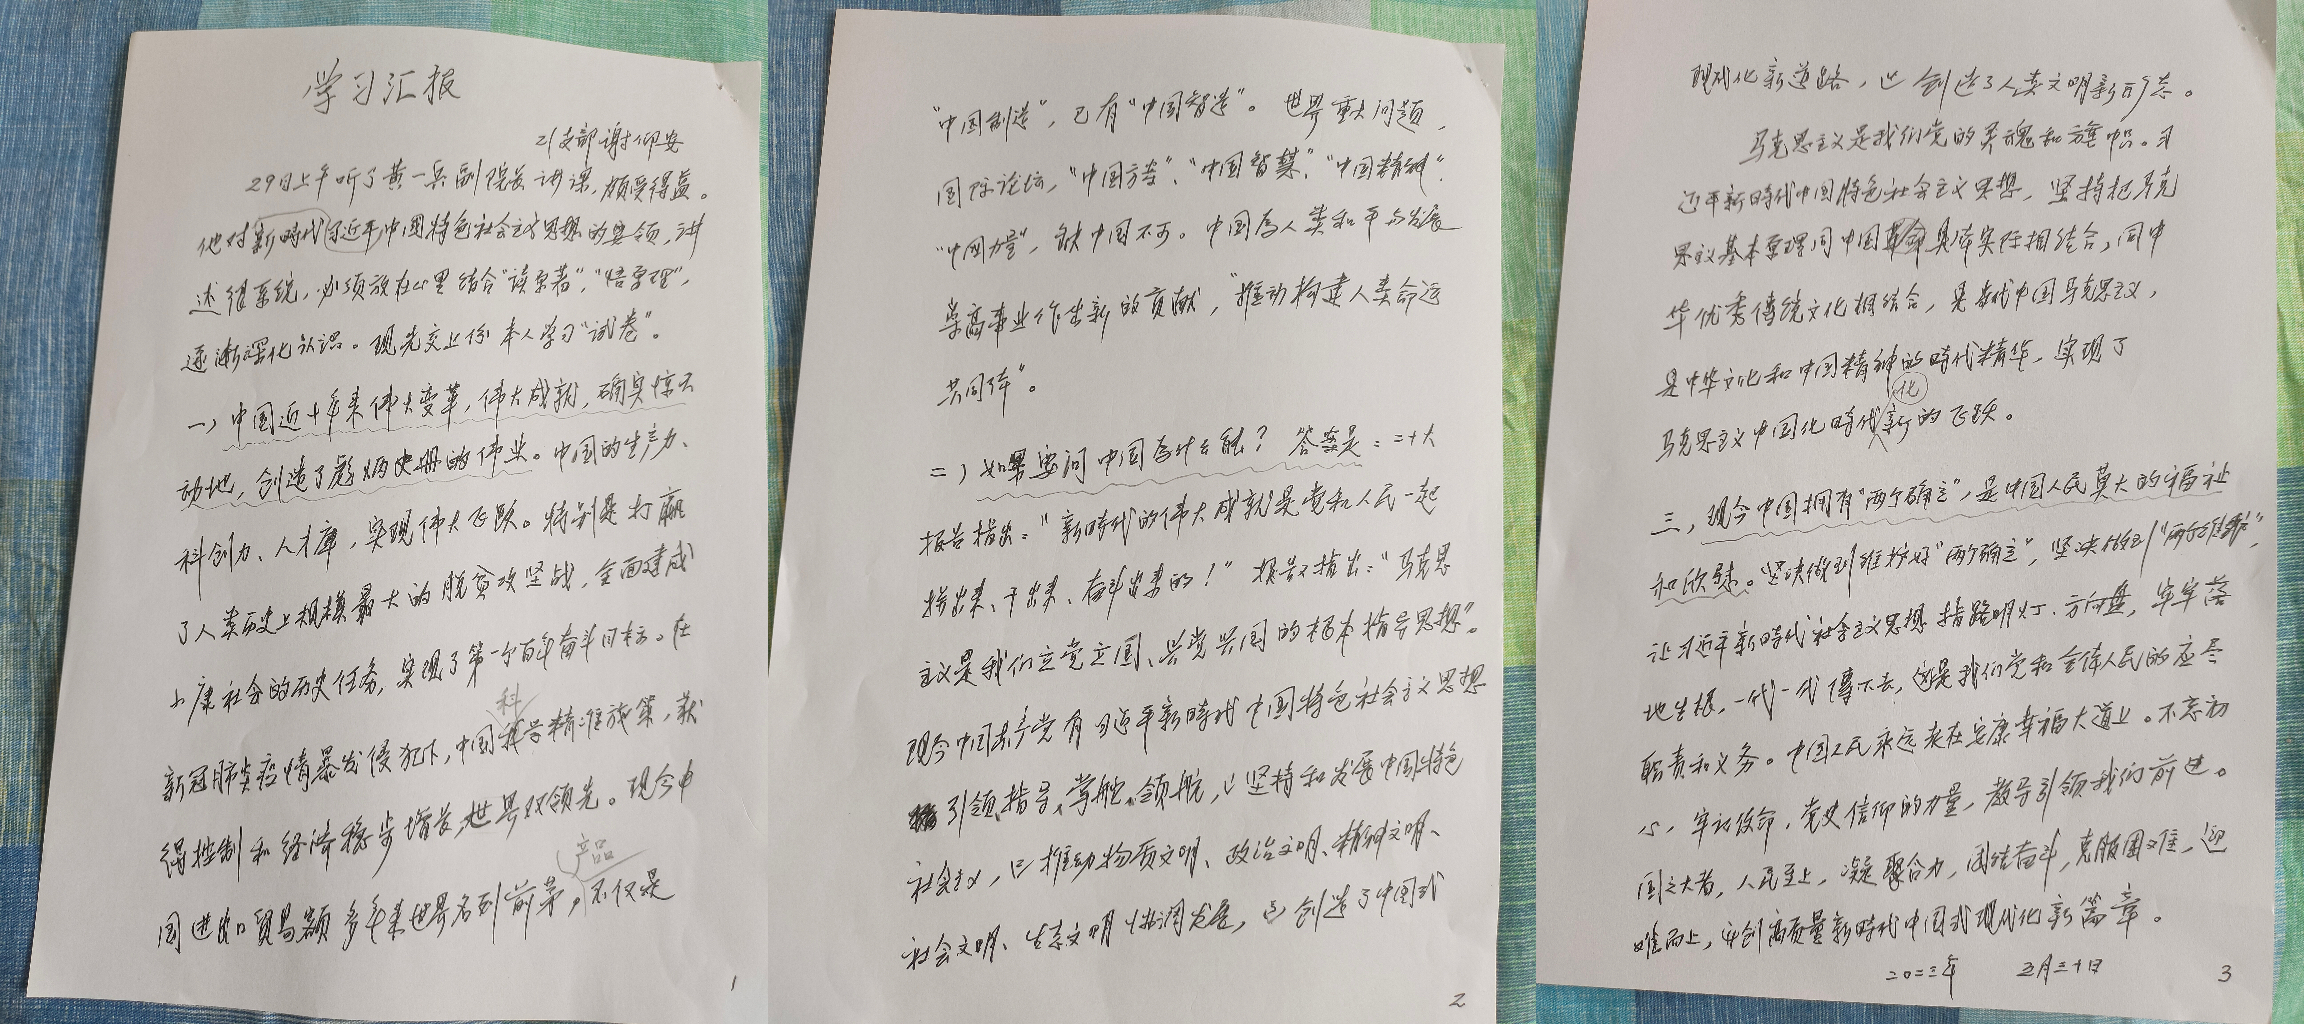 学习汇报
21支部 谢仰安
29日上午听了黄一兵副院长讲课,颇受得益。
他对新時代习近平中国特色社会主义思想的要领,讲
述很系统,必须放在心里结合"读原著","悟原理",
逐渐深化认识。现先交上份本人学习"试卷"。
一)中国近十年来伟大变革,伟大成就,确实惊天
动地,创造了彪炳史册的伟业。中国的生产力、
科创力、人才库,实现伟大飞跃。特别是打赢
了人类历史上规模最大的脱贫攻坚战,全面建成
小康社会的历史任务,实现了第一个百年奋斗目标。在
科
新冠肺炎疫情暴发侵犯下,中国学精准施策,获
得控制和经济稳步增长,世界双领先。现今中
产品
国进出口贸易额多年来世界名列前茅,不仅是
1
"中国制造",已有"中国智造"。世界重大问题,
国际论坛,"中国方案"、"中国智慧"、"中国精神"、
"中国力量",缺中国不可。中国为人类和平与发展
崇高事业作出新的贡献,"推动构建人类命运
共同体"。
二)如果要问中国为什么能?答案是:二十大
报告指出:"新時代的伟大成就是党和人民一起
拼出来、干出来、奋斗出来的!"报告又指出:"马克思
主义是我们立党立国、兴党兴国的根本指导思想"。
现今中国共产党有习近平新時代中国特色社会主义思想
引领、指导、掌舵、领航,以坚持和发展中国特色
社会主义,以推动物质文明、政治文明、精神文明、
社会文明、生态文明协调发展,创造了中国式
2
现代化新道路,创造了人类文明新形态。
马克思主义是我们党的灵魂和旗帜。习
近平新時代中国特色社会主义思想,坚持把马克
思主义基本原理同中国革命具体实际相结合,同中
华优秀传统文化相结合,是当代中国马克思主义,
是中华文化和中国精神的時代精华,实现了
化
马克思主义中国化時代新的飞跃。
三,现今中国拥有"两个确立",是中国人民莫大的福祉
和欣慰。坚决做到维护好"两个确立",坚决做到"两个维护",
让习近平新時代社会主义思想指路明灯、方向盘,牢牢落
地生根,一代一代传下去,这是我们党和全体人民的应尽
职责和义务。中国人民永远走在安康幸福大道上。不忘初
心,牢记使命,党史信仰的力量,教导引领我们前进。
国之大者,人民至上,凝聚合力,团结奋斗,克服困难,迎
难而上,开创高质量新時代中国式现代化新篇章。
二0二三年 五月三十日
3